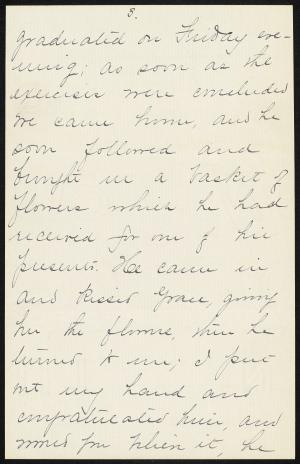 3.
graduated on Friday eve-
ning; as soon as the
exercises were concluded
we came home, and he
soon followed and
brought in a basket of
flowers which he had
received for one of his
presents. He came in
and kissed Grace, giving
her the flowers, then he
turned to me; I put
out my hand and
congratulated him, and
before I knew it, he